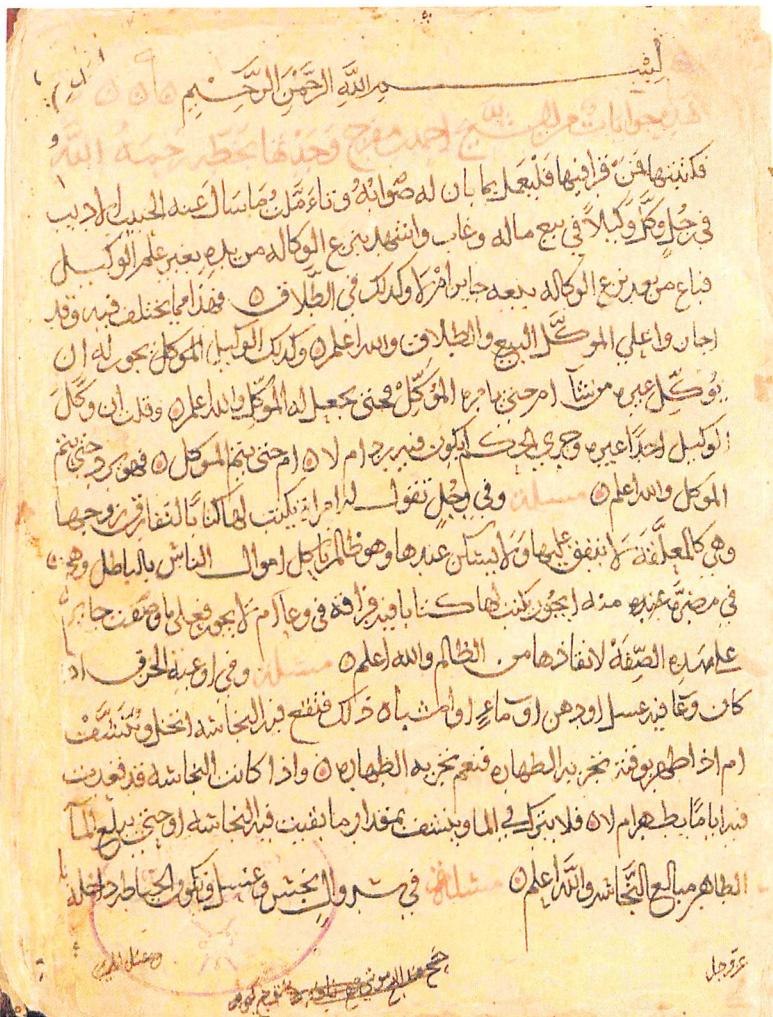 بسم الله الرحمن الرحيم
هذه جوابات من الشيخ احمد بن مفرج وجدتها بخطه رحمه الله
فكتبتها فمن قرا فيها فليعمل بما بان له صوابه وتامل ما سال عنه الحبيب الاديب
في رجل وكل وكيلا في بيع ماله وغاب واشهد بنزع الوكاله من يده بغير علم الوكيل
فباع من بعد نزع الوكاله بيعه جايز ام لا وكذلك في الطلاق فهذا مما يختلف فيه وقد
اجازوا علي الموكل البيع والطلاق والله اعلم وكذلك الوكيل الموكل يجوز له ان
يوكل غيره من شآ ام حتى يامره الموكل فحتى يجعل له الموكل والله اعلم وقلت ان وكل
الوكيل احدا غيره وجري الحكم ايكون فيه رد ام لا ام حتى يتم الموكل فهو يرد حتى يتم
الموكل والله اعلم مسلة وفي رجل تقول له امراة يكتب لها كتابا لتفارق زوجها
وهي كالمعلقة لا ينفق عليها ولا يسكن عندها وهو ظالم ياكل اموال الناس بالباطل وهي
في مضرة عنده منه ايجوز يكتب لها كتابا فيه فراقه في وعا ام لا يجوز فعلى ما وصفت جايز
على هذه الصفة لانقاذها من الظالم والله اعلم مسلة وفي اوعية الخزف اذا
كان وعا فيه عسل او دهن او ماء او اشباه ذلك فتقع فيه النجاسه
ام اذا طهر بوقته تجزيه الطهاره فنعم تجزيه الطهاره واذا كانت النجاسه قد قعدت
فيه اياما يطهر ام لا فلا يترك في الما وينشف بمقدار ما بقيت فيه النجاسه او حتى يبلغ المآ
الطاهر مبالغ النجاسه والله اعلم مسلة في سروال نجس وغسل وتكون الخياطه داخله
عز وجل